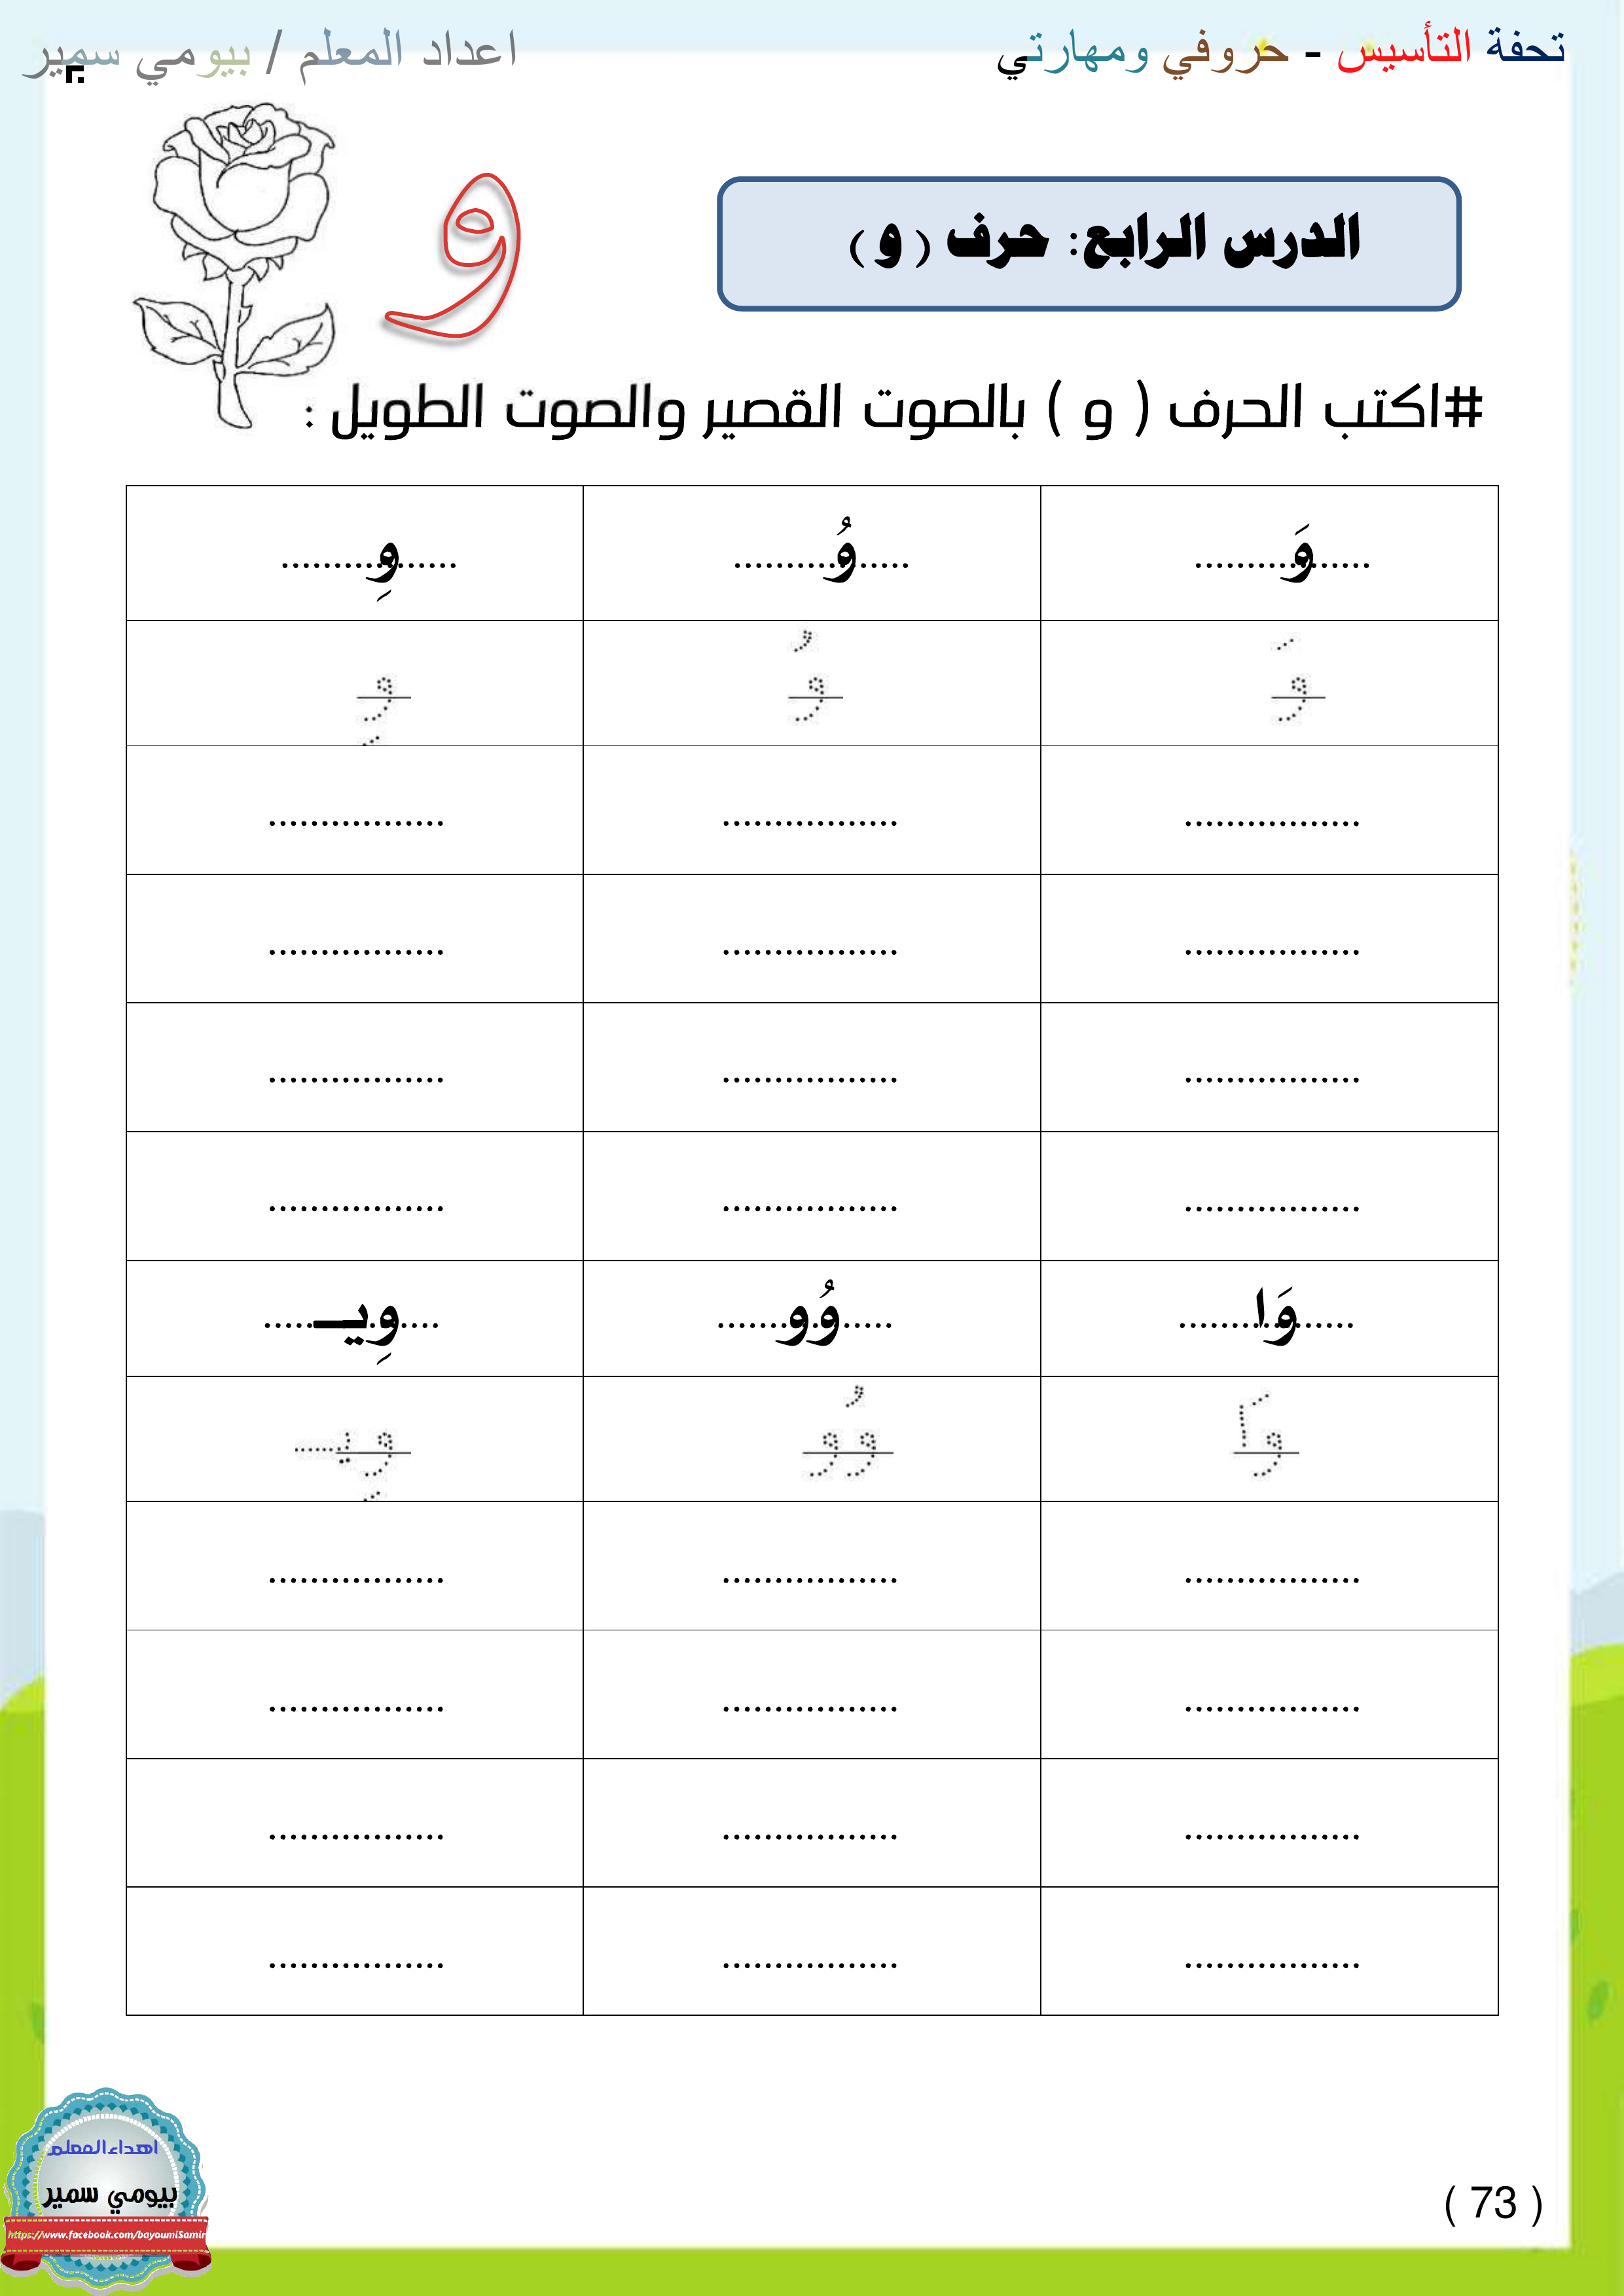 تحفة التأسيس - حروفي ومهارتي
اعداد المعلم / بيومي سمير
الدرس الرابع: حرف ( و )
و
#اكتب الحرف ( و ) بالصوت القصير والصوت الطويل :
وَ وُ وِ
وَ وُ وِ
................. ................. .................
................. ................. .................
................. ................. .................
................. ................. .................
وَا وُو وِيـ
وَا وُو وِيـ
................. ................. .................
................. ................. .................
................. ................. .................
................. ................. .................
اهداء المعلم
بيومي سمير
https://www.facebook.com/bayoumiSamir
( 73 )